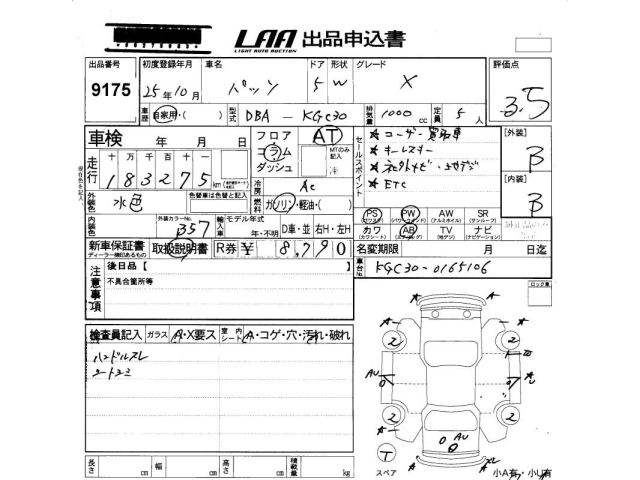 LAA 出品申込書
LIGHT AUTO AUCTION
出品番号 初度登録年月 車名 ドア 形状 グレード 評価点
9175 25年10月 パッソ 5 W X 3.5
車歴 自家用・( ) 型式 DBA - KGC30 排気量 1000 cc 定員 5 人
車検 年 月 日 フロア コラム ダッシュ AT
MTのみ記入
セールスポイント
★ユーザー買取車
★キーレスキー
★ETC
[外装] B
[内装] B
走行 十 万 千 百 十
183275 km
現在色を記入
外装色 水色 色替車は色替と記入
冷房 AC
燃料 ガソリン・軽油・( )
内装色 外装カラーNo. B57 輸入車 モデル年式 年・不明 D車・並 右H・左H
PS PW AW SR
(パワステ) (パワーウィンド) (アルミホイル) (サンルーフ)
カワ AB TV ナビ
(カワシート) (エアバッグ) (地デジ) (ナビゲーション)
新車保証書 取扱説明書 R券 ¥ 8,790
ディーラー捺印あるもの
名変期限 月 日迄
車台No. KGC30-0165106
注意事項
後日品【 】
不具合箇所等
ロック車
検査員記入 ガラス A・X要ス 室内シート A・コゲ・穴・汚れ・破れ
ハンドルスレ
シートシミ
A A
2 2
AU A
2 2
AU
T
スペア
小A有・小U有
長さ cm 幅 cm 高さ cm 積載量 kg